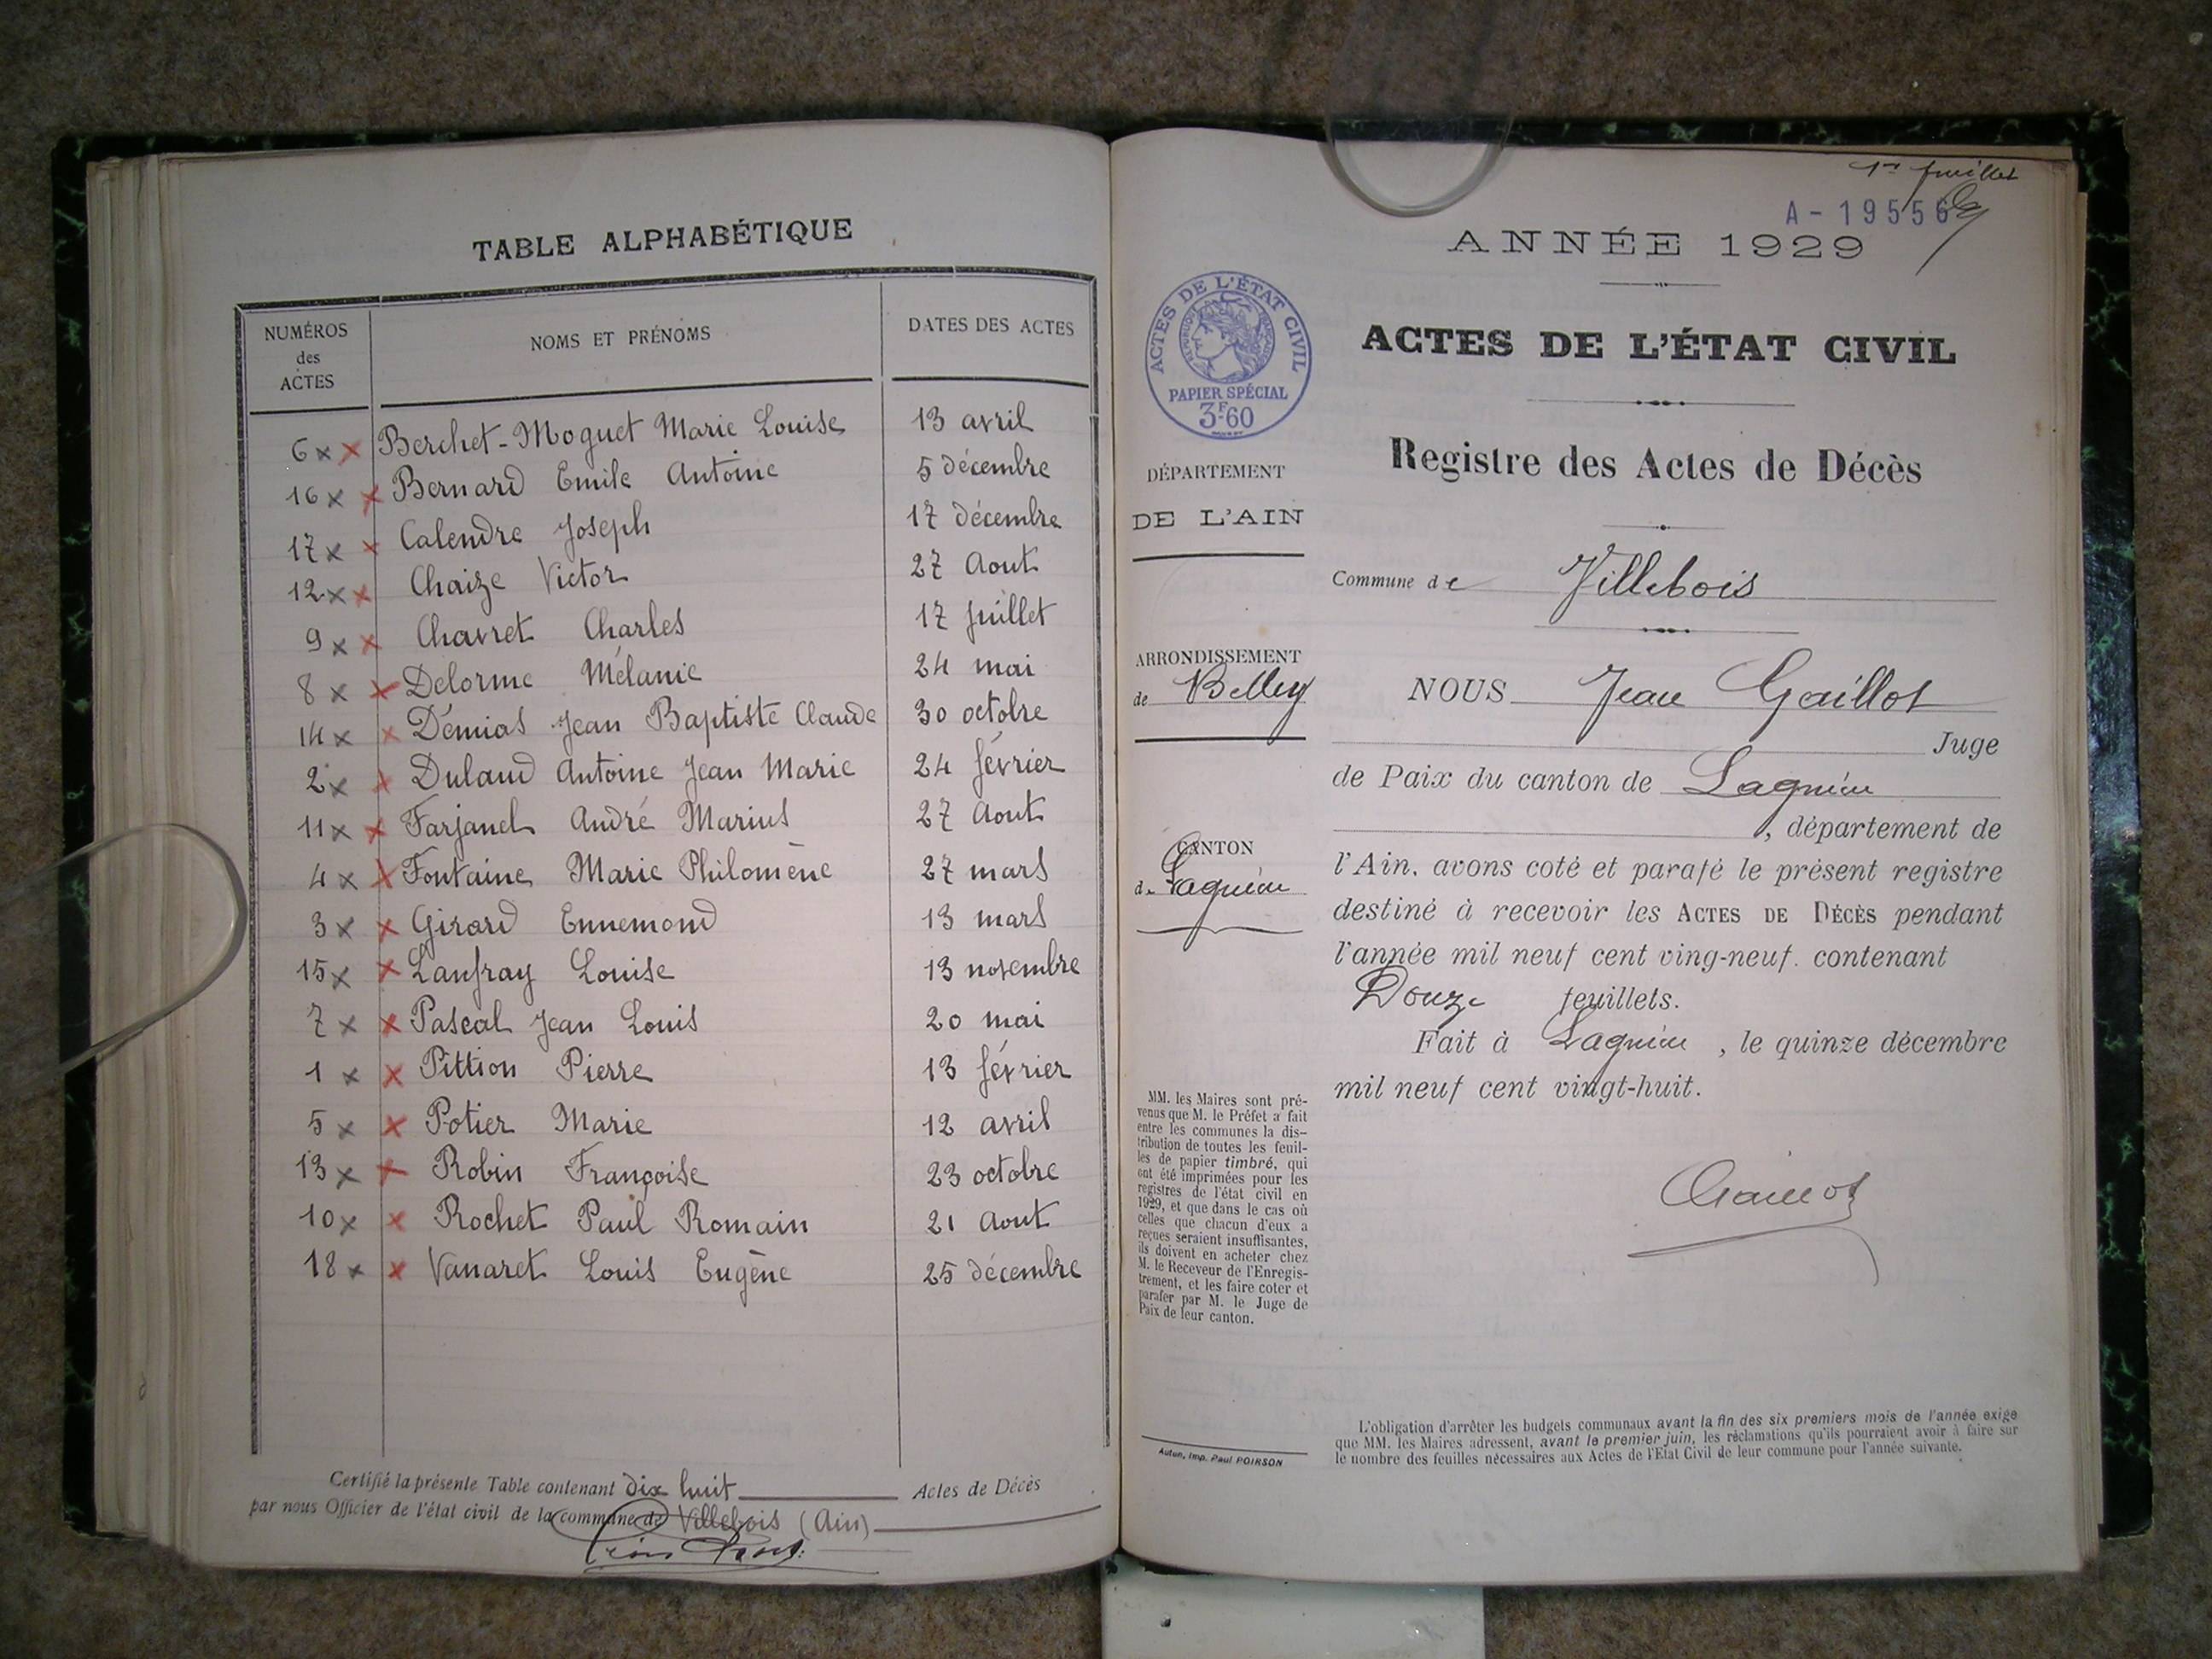 TABLE ALPHABÉTIQUE
NUMÉROS des ACTES NOMS ET PRÉNOMS DATES DES ACTES
6 Berchet-Moguet Marie Louise 13 avril
16 Bernard Emile Antoine 5 décembre
17 Calendre Joseph 17 décembre
12 Chaize Victor 27 Aout
9 Chavret Charles 17 Juillet
8 Delorme Mélanie 24 mai
14 Démias Jean Baptiste Claude 30 octobre
2 Dulaud Antoine Jean Marie 24 février
11 Farjanel André Marius 27 Aout
4 Fontaine Marie Philomène 27 mars
3 Girard Ennemond 13 mars
15 Lanfray Louise 13 novembre
7 Pascal Jean Louis 20 mai
1 Pittion Pierre 13 février
5 Potier Marie 12 avril
13 Robin Françoise 23 octobre
10 Rochet Paul Romain 21 Aout
18 Vanaret Louis Eugène 25 décembre
Certifié la présente Table contenant dix huit Actes de Décès
par nous Officier de l'état civil de la commune de Villebois (Ain)
1er feuillet
A-19556
ANNÉE 1929
ACTES DE L'ÉTAT CIVIL
RÉPUBLIQUE FRANÇAISE
PAPIER SPÉCIAL
3F60
DÉPARTEMENT
DE L'AIN
ARRONDISSEMENT
de Belley
CANTON
de Lagnieu
MM. les Maires sont pré-
venus que M. le Préfet a fait
entre les communes la dis-
tribution de toutes les feuil-
les de papier timbré, qui
ont été imprimées pour les
registres de l'état civil en
1929, et que dans le cas où
celles que chacun d'eux a
reçues seraient insuffisantes,
ils doivent en acheter chez
M. le Receveur de l'Enregis-
trement, et les faire coter et
parafer par M. le Juge de
Paix de leur canton.
Autun, Imp. Paul POIRSON
ACTES DE L'ÉTAT CIVIL
Registre des Actes de Décès
Commune de Villebois
NOUS Jean Gaillot
Juge
de Paix du canton de Lagnieu
, département de
l'Ain, avons coté et parafé le présent registre
destiné à recevoir les ACTES DE DÉCÈS pendant
l'année mil neuf cent ving-neuf. contenant
Douze feuillets.
Fait à Lagnieu, le quinze décembre
mil neuf cent vingt-huit.
Gaillot
L'obligation d'arrêter les budgets communaux avant la fin des six premiers mois de l'année exige
que MM. les Maires adressent, avant le premier juin, les réclamations qu'ils pourraient avoir à faire sur
le nombre des feuilles nécessaires aux Actes de l'Etat Civil de leur commune pour l'année suivante.